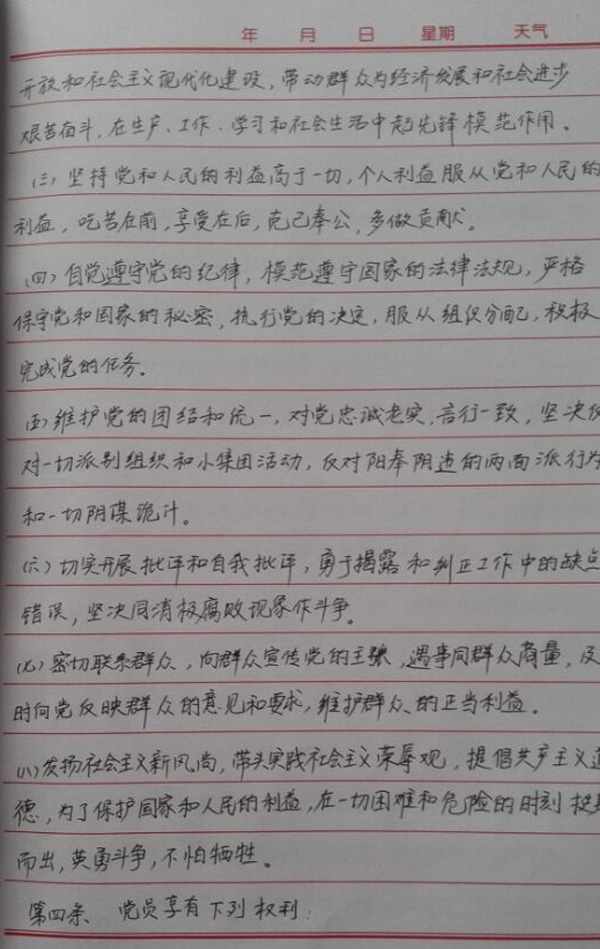 年 月 日 星期 天气
开放和社会主义现代化建设，带动群众为经济发展和社会进步
艰苦奋斗，在生产、工作、学习和社会生活中起先锋模范作用。
(三) 坚持党和人民的利益高于一切，个人利益服从党和人民的
利益，吃苦在前，享受在后，克己奉公，多做贡献。
(四) 自觉遵守党的纪律，模范遵守国家的法律法规，严格
保守党和国家的秘密，执行党的决定，服从组织分配，积极
完成党的任务。
(五) 维护党的团结和统一，对党忠诚老实，言行一致，坚决反
对一切派别组织和小集团活动，反对阳奉阴违的两面派行为
和一切阴谋诡计。
(六) 切实开展批评和自我批评，勇于揭露和纠正工作中的缺点
错误，坚决同消极腐败现象作斗争。
(七) 密切联系群众，向群众宣传党的主张，遇事同群众商量，及
时向党反映群众的意见和要求，维护群众的正当利益。
(八) 发扬社会主义新风尚，带头实践社会主义荣辱观，提倡共产主义道
德，为了保护国家和人民的利益，在一切困难和危险的时刻挺身
而出，英勇斗争，不怕牺牲。
第四条 党员享有下列权利：